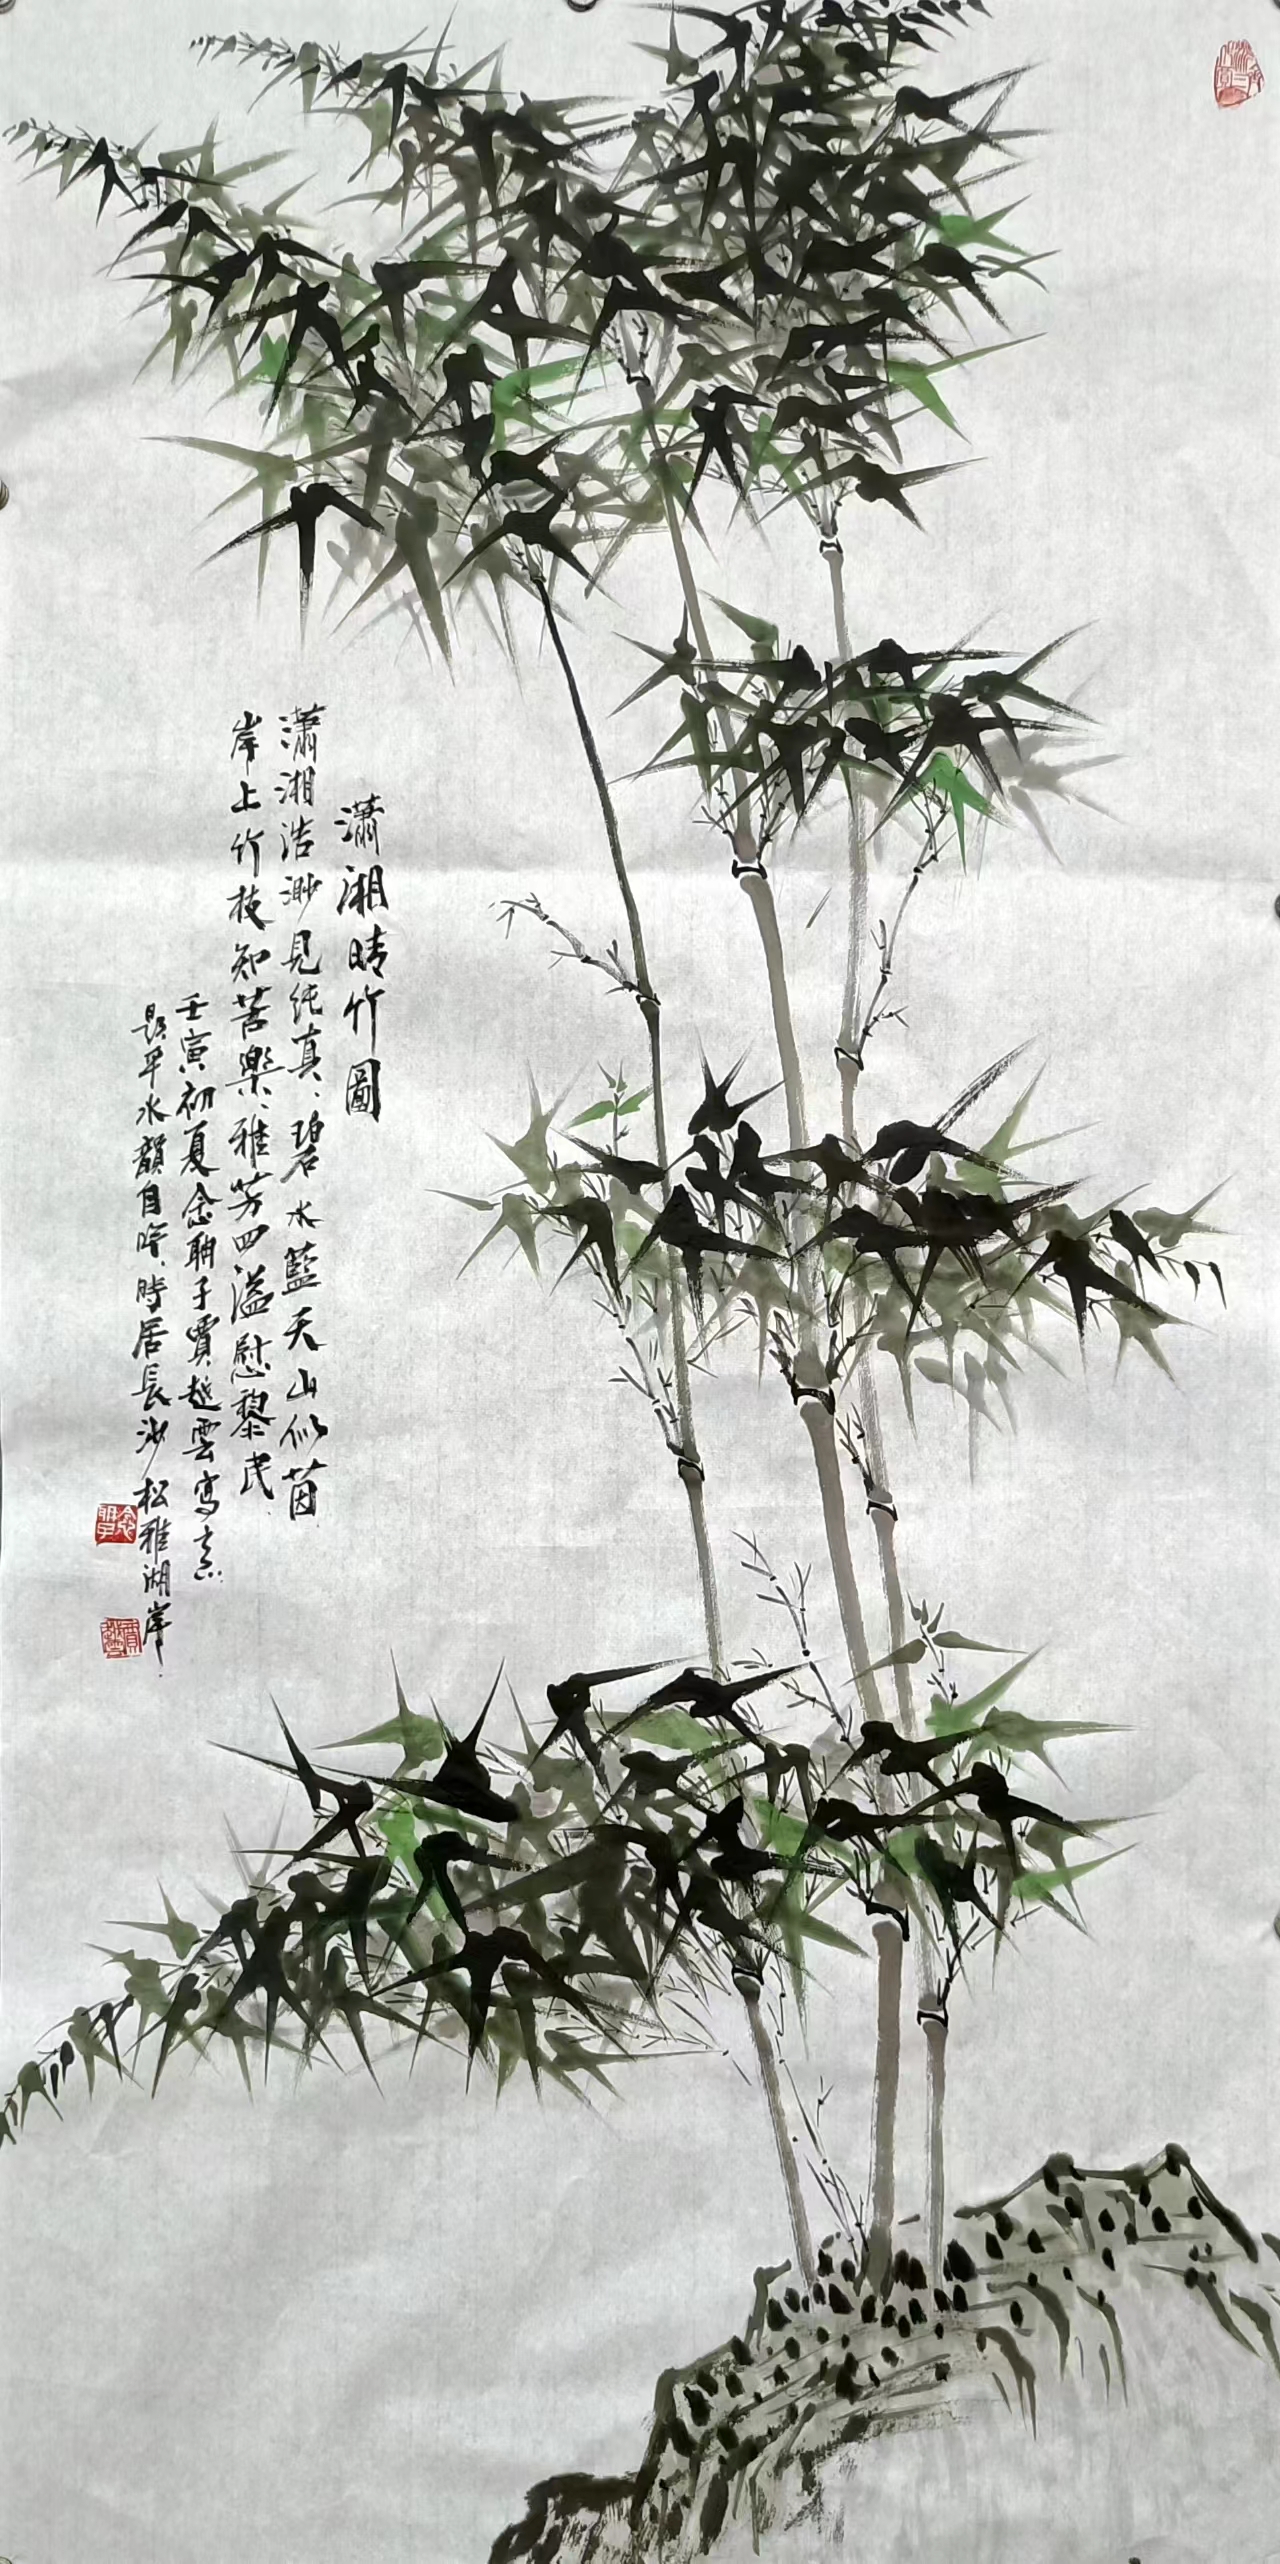 瀟湘晴竹圖
瀟湘浩渺見純真、碧水藍天山似茵
岸上竹枝知苦樂、雅芳四溢慰黎民
壬寅初夏念聃子賈越雲寫意
題平水韻自吟、時居長沙松雅湖岸
念聃子